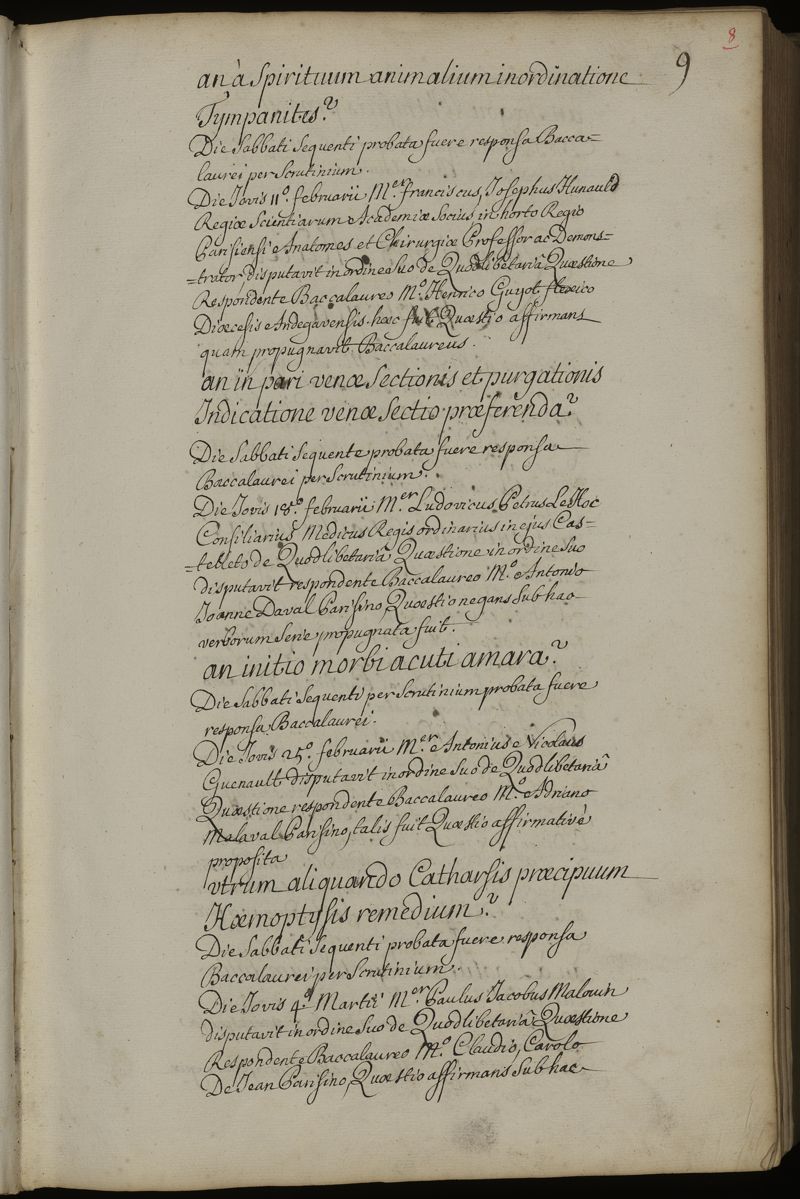 8
9
an à Spirituum animalium inordinatione
Tympanites?
Die Sabbati Sequenti probata fuere responsa Bacca=
laurei per Scrutinium.
Die Jovis 11º. februarii M.er Franciscus Josephus Hunauld
Regiæ Scientiarum Academiæ Socius in horto Regio
Parisiensi Anatomes et Chirurgiæ Professor ac Demons=
=trator disputavit in ordine Suo de Quodlibetariâ Quæstione
Respondente Baccalaureo M.º Henrico Guyot
Diœcesis Andegavensis. hæc fuit Quæstio affirmans
quam propugnavit Baccalaureus.
an in pari venæ Sectionis et purgationis
Indicatione venæ Sectio præferenda?
Die Sabbati Sequente probata fuere responsa
Baccalaurei per Scrutinium.
Die Jovis 18.º februarii M.er Ludovicus Petrus Le Hoc
Consiliarius Medicus Regis ordinarius in ejus Cas=
=telleto de Quodlibetariâ Quæstione in ordine Suo
disputavit respondente Baccalaureo M.º Antonio
Joanne Daval Parisino, Quæstio negans Sub hac
verborum Serie propugnata fuit.
an initio morbi acuti amara?
Die Sabbati Sequenti per Scrutinium probata fuere
responsa Baccalaurei.
Die Jovis 25º. februarii M.er Antonius Nicolaus
Guenault disputavit in ordine Suo de Quodlibetariâ
Quæstione respondente Baccalaureo M.º Adriano
Malaval Parisino, talis fuit Quæstio affirmativè
proposita
utrum aliquando Catharsis præcipuum
Hæmoptysis remedium?
Die Sabbati Sequenti probata fuere responsa
Baccalaurei per Scrutinium.
Die Jovis 4.º Martii M.er Paulus Jacobus Malouin
disputavit in ordine Suo de Quodlibetariâ Quæstione
Respondente Baccalaureo M.º Claudio, Carolo
De Jean Parisino, Quæstio affirmans Sub hac